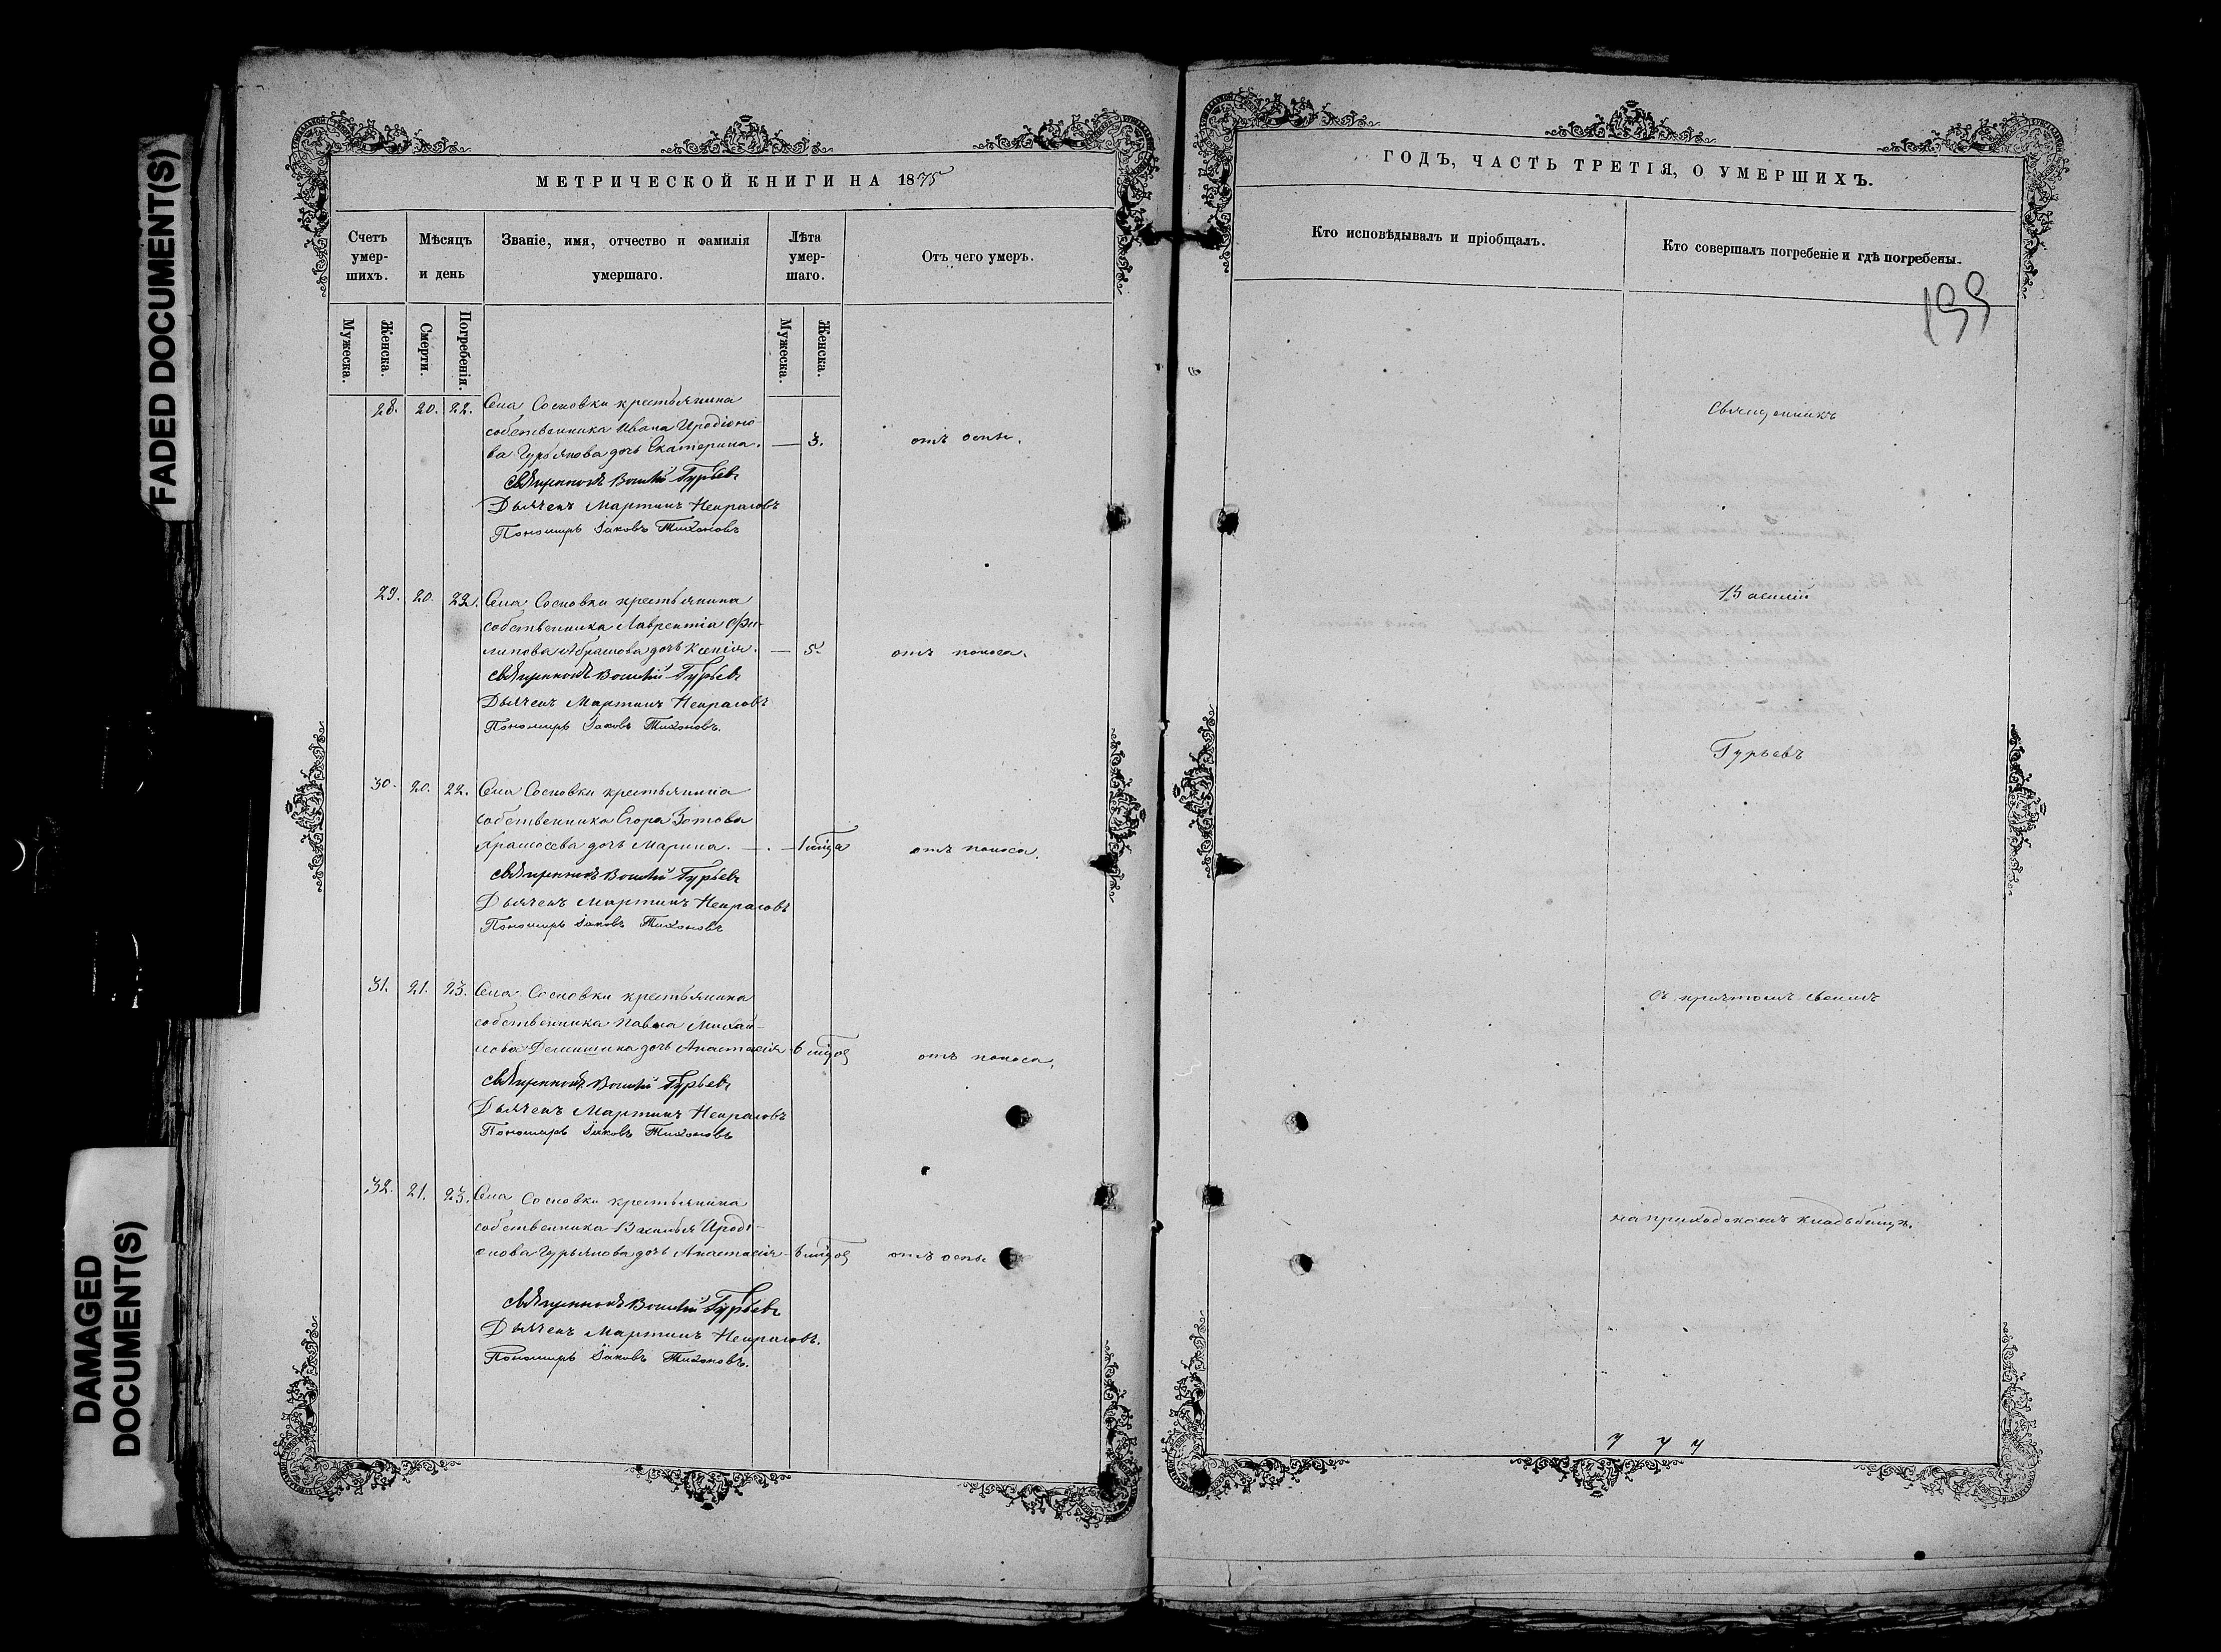 FADED DOCUMENT(S)
DAMAGED
DOCUMENT(S)
МЕТРИЧЕСКОЙ КНИГИ НА 1875
Счетъ умер-шихъ.
Мѣсяцъ и день
Званіе, имя, отчество и фамилія умершаго.
Лѣта умер-шаго.
Отъ чего умеръ.
Мужеска.
Женска.
Смерти.
Погребенія.
Мужеска.
Женска.
28. 20. 22. Села Сосновки крестьянина
собственника Ивана Иродіоно-
ва Гурьянова дочь Екатерина. — 3. отъ оспы.
Священникъ Василій Гурьевъ
Дьячекъ Мартинъ Некрасовъ
Пономарь Іаковъ Тихоновъ
29. 20. 22. Села Сосновки крестьянина
собственника Лаврентіа Фи-
липова Абрамова дочь Ксенія. — 5. отъ поноса.
Священникъ Василій Гурьевъ
Дьячекъ Мартинъ Некрасовъ
Пономарь Іаковъ Тихоновъ.
30. 20. 22. Села Сосновки крестьянина
собственника Егора Зотова
дочь Марина. — 1 отъ поноса.
Священникъ Василій Гурьевъ
Дьячекъ Мартинъ Некрасовъ
Пономарь Іаковъ Тихоновъ
31. 21. 23. Села Сосновки крестьянина
собственника Павла Михай-
лова дочь Анастасія 6 отъ поноса.
Священникъ Василій Гурьевъ
Дьячекъ Мартинъ Некрасовъ
Пономарь Іаковъ Тихоновъ
32. 21. 23. Села Сосновки крестьянина
собственника Василья Ироді-
онова Гурьянова дочь Анастасія 6 отъ оспы
Священникъ Василій Гурьевъ
Дьячекъ Мартинъ Некрасовъ.
Пономарь Іаковъ Тихоновъ.
ГОДЪ, ЧАСТЬ ТРЕТІЯ, О УМЕРШИХЪ.
Кто исповѣдывалъ и пріобщалъ.
Кто совершалъ погребеніе и гдѣ погребены.
199
Священникъ
Василій
Гурьевъ
съ причтомъ своимъ
на приходскомъ кладбищѣ.